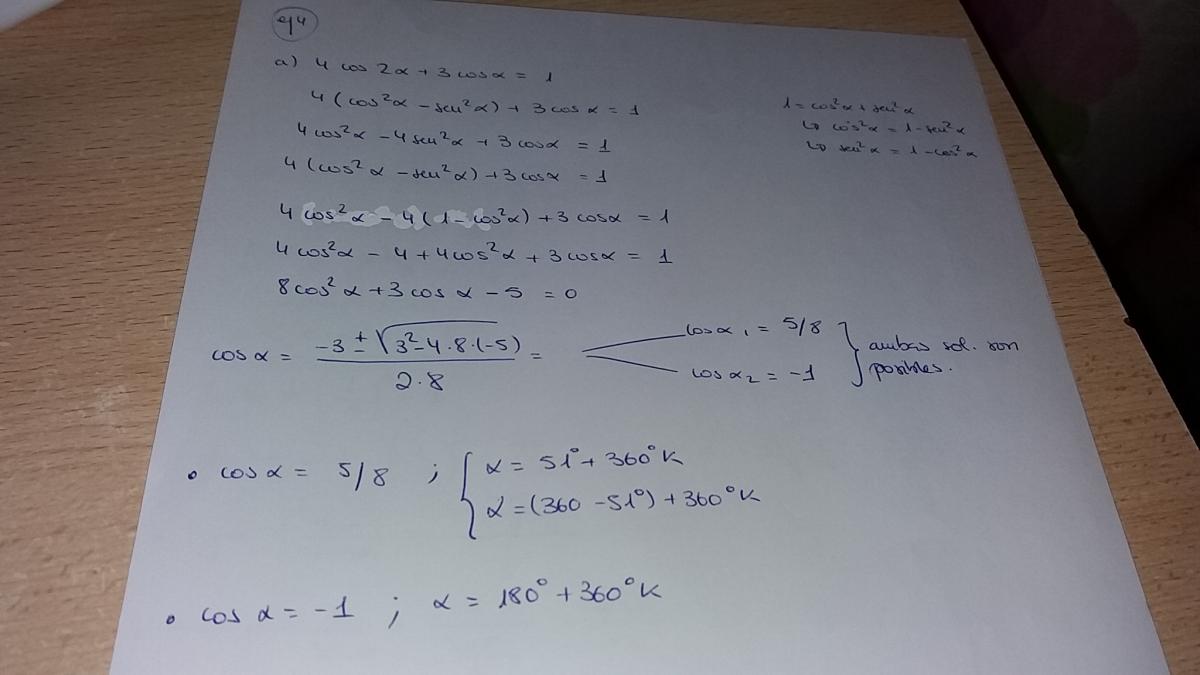 ej 4
a) 4 cos 2α + 3 cos α = 1
4 (cos²α - sen²α) + 3 cos α = 1
4 cos²α - 4 sen²α + 3 cos α = 1
4 (cos²α - sen²α) + 3 cos α = 1
4 cos²α - 4 (1 - cos²α) + 3 cos α = 1
4 cos²α - 4 + 4 cos²α + 3 cos α = 1
8 cos²α + 3 cos α - 5 = 0
1 = cos²α + sen²α
↳ cos²α = 1 - sen²α
↳ sen²α = 1 - cos²α
cos α = (-3 ± √(3² - 4·8·(-5))) / (2·8) =
cos α₁ = 5/8
cos α₂ = -1
ambas sol. son
posibles.
• cos α = 5/8 ; { α = 51° + 360° K
α = (360 - 51°) + 360° K
• cos α = -1 ; α = 180° + 360° K